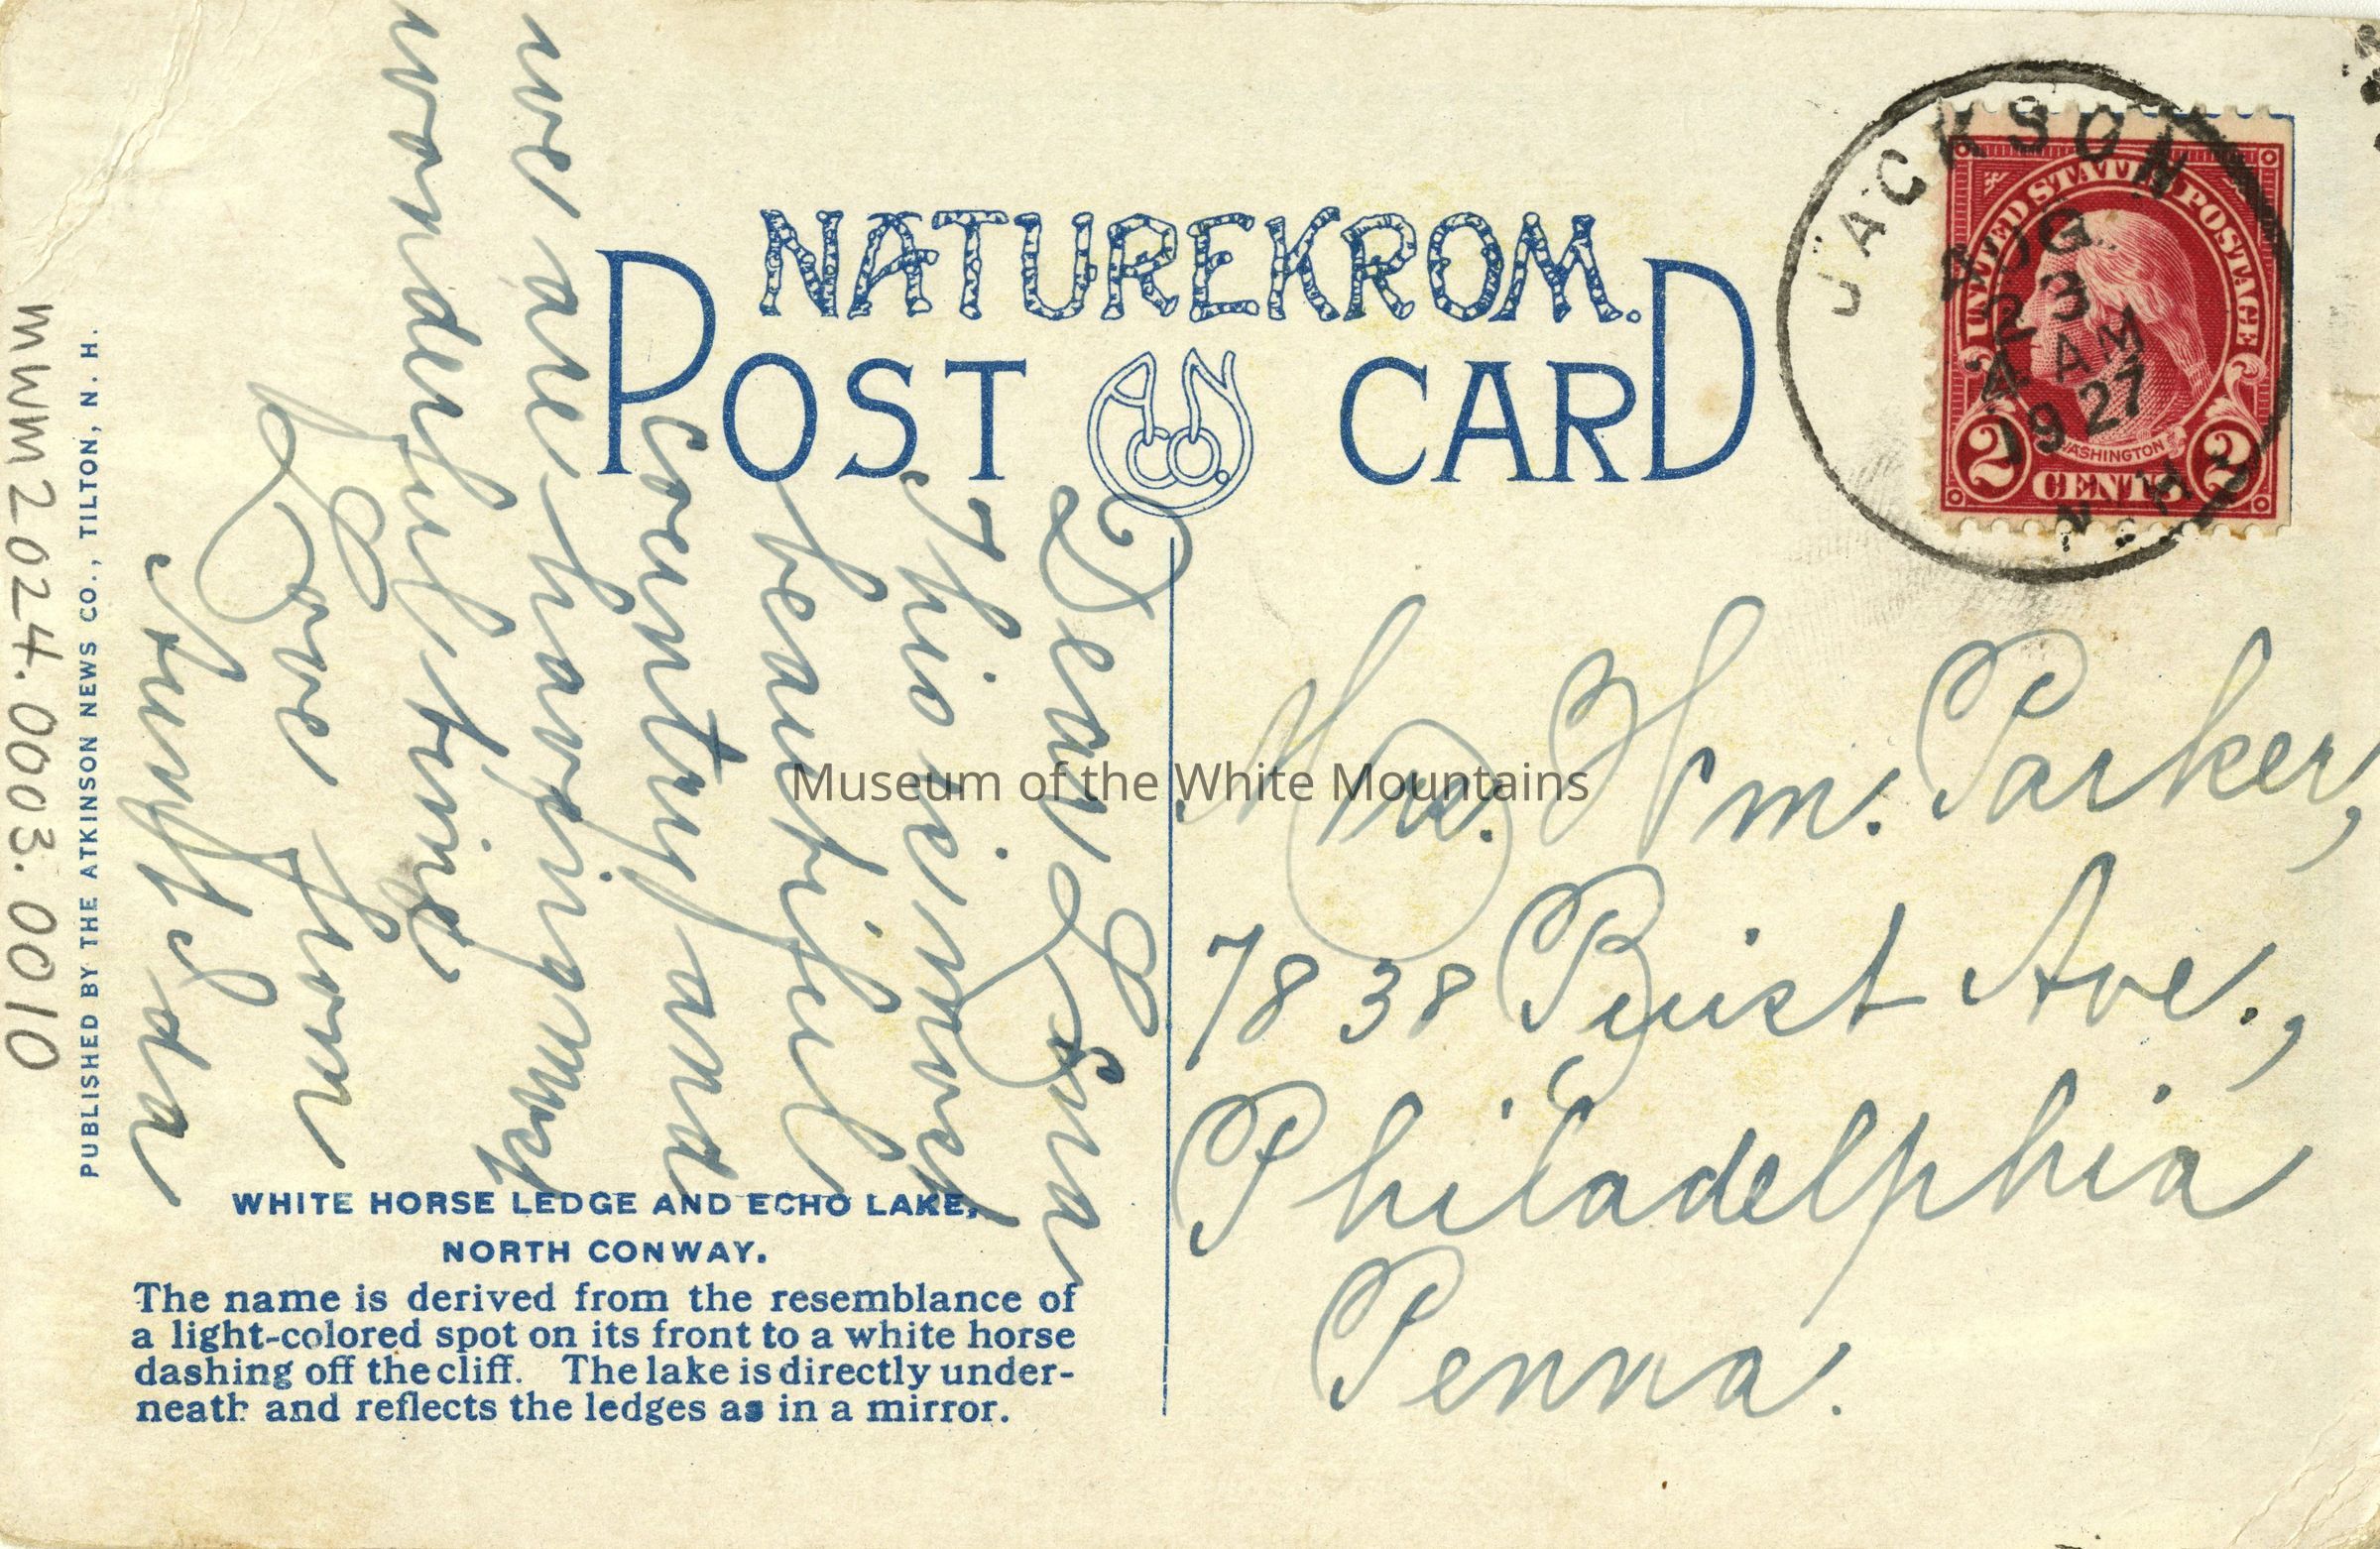 NATUREKROM.
POST CARD
AN CO.
JACKSON
AUG
23
4 AM
1927
N.H.
UNITED STATES POSTAGE
WASHINGTON
2 CENTS 2
Dear Lina
This is most
beautiful
country and
we are having most
wonderful time
Love from
Ida
Mrs. Wm. Parker,
7838 Buist Ave.,
Philadelphia
Penna.
Museum of the White Mountains
WHITE HORSE LEDGE AND ECHO LAKE,
NORTH CONWAY.
The name is derived from the resemblance of
a light-colored spot on its front to a white horse
dashing off the cliff. The lake is directly under-
neath and reflects the ledges as in a mirror.
PUBLISHED BY THE ATKINSON NEWS CO., TILTON, N. H.
MWM2024.0003.0010